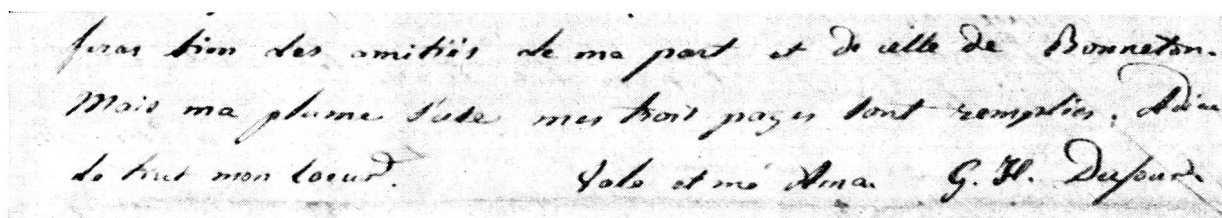 feras bien des amitiés de ma part et de celle de Bonneton.
Mais ma plume s'use mes trois pages sont remplies, Adieu
de tout mon coeur.   Vale et me Ama.   G. H. Dufour.